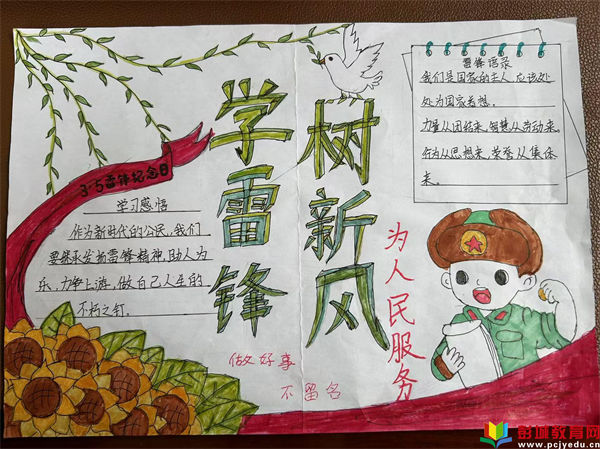 学雷锋
树新风
3·5雷锋纪念日
学习感悟
作为新时代的公民,我们
要继承发扬雷锋精神,助人为
乐,力争上游,做自己人生的
不朽之钉.
雷锋语录
我们是国家的主人,应该处
处为国家着想.
力量从团结来,智慧从劳动来,
行为从思想来,荣誉从集体
来.
为人民服务
做好事
不留名
彭城教育网
www.pcjyedu.cn